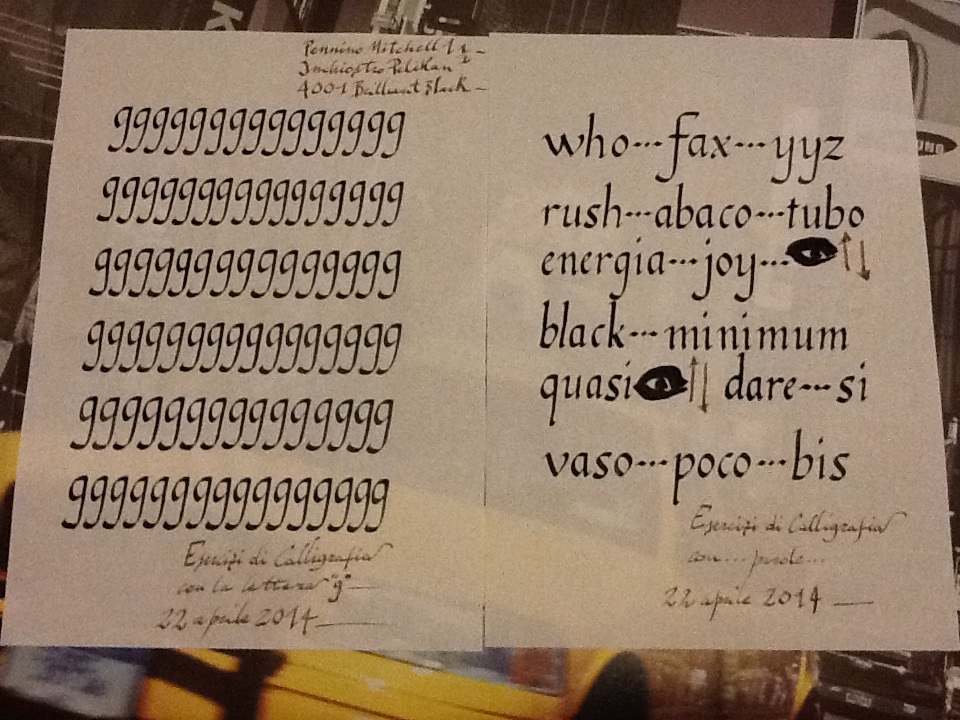 Pennino Mitchell 1 ½ –
Inchiostro Pelikan
4001 Brilliant Black –
ggggggggggggggg
ggggggggggggggg
ggggggggggggggg
gggggggggggggggg
gggggggggggggggg
gggggggggggggggg
Esercizi di Calligrafia
con la lettera "g" —
22 aprile 2014 —
who...fax...yyz
rush...abaco...tubo
energia...joy...
black...minimum
quasi dare...si
vaso...poco...bis
Esercizi di Calligrafia
con...parole...
22 aprile 2014 —